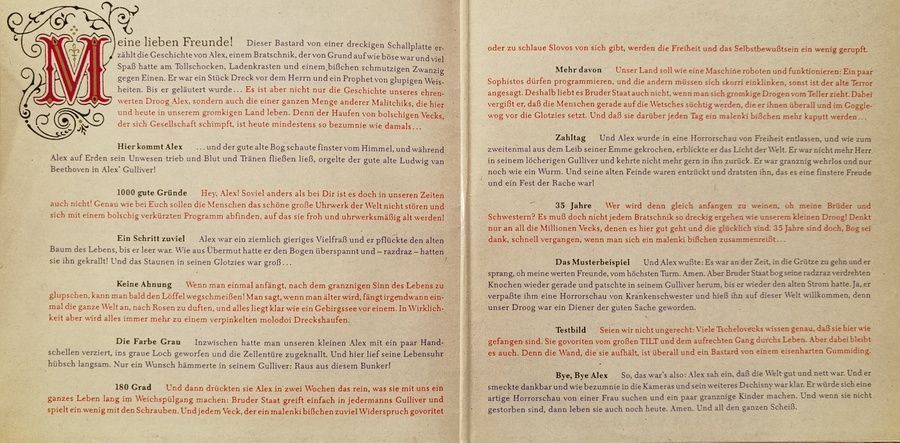 Meine lieben Freunde! Dieser Bastard von einer dreckigen Schallplatte er-
zählt die Geschichte von Alex, einem Bratschnik, der von Grund auf wie böse war und viel
Spaß hatte am Tollschocken, Ladenkrasten und einem bißchen schmutzigen Zwanzig
gegen Einen. Er war ein Stück Dreck vor dem Herrn und ein Prophet von glupigen Weis-
heiten. Bis er geläutert wurde... Es ist aber nicht nur die Geschichte unseres ehren-
werten Droog Alex, sondern auch die einer ganzen Menge anderer Malitchiks, die hier
und heute in unserem gromkigen Land leben. Denn der Haufen von bolschigen Vecks,
der sich Gesellschaft schimpft, ist heute mindestens so bezumnie wie damals...
Hier kommt Alex ...und der gute alte Bog schaute finster vom Himmel, und während
Alex auf Erden sein Unwesen trieb und Blut und Tränen fließen ließ, orgelte der gute alte Ludwig van
Beethoven in Alex' Gulliver!
1000 gute Gründe Hey, Alex! Soviel anders als bei Dir ist es doch in unseren Zeiten
auch nicht! Genau wie bei Euch sollen die Menschen das schöne große Uhrwerk der Welt nicht stören und
sich mit einem bolschig verkürzten Programm abfinden, auf das sie froh und uhrwerksmäßig alt werden!
Ein Schritt zuviel Alex war ein ziemlich gieriges Vielfraß und er pflückte den alten
Baum des Lebens, bis er leer war. Wie aus Übermut hatte er den Bogen überspannt und – razdraz – hatten
sie ihn gekrallt! Und das Staunen in seinen Glotzies war groß...
Keine Ahnung Wenn man einmal anfängt, nach dem granznigen Sinn des Lebens zu
glupschen, kann man bald den Löffel wegschmeißen! Man sagt, wenn man älter wird, fängt irgendwann ein-
mal die ganze Welt an, nach Rosen zu duften, und alles liegt klar wie ein Gebirgssee vor einem. In Wirklich-
keit aber wird alles immer mehr zu einem verpinkelten molodoi Dreckshaufen.
Die Farbe Grau Inzwischen hatte man unseren kleinen Alex mit ein paar Hand-
schellen verziert, ins graue Loch geworfen und die Zellentüre zugeknallt. Und hier lief seine Lebensuhr
hübsch langsam. Nur ein Wunsch hämmerte in seinem Gulliver: Raus aus diesem Bunker!
180 Grad Und dann drückten sie Alex in zwei Wochen das rein, was sie mit uns ein
ganzes Leben lang im Weichspülgang machen: Bruder Staat greift einfach in jedermanns Gulliver und
spielt ein wenig mit den Schrauben. Und jedem Veck, der ein malenki bißchen zuviel Widerspruch govoritet
oder zu schlaue Slovos von sich gibt, werden die Freiheit und das Selbstbewußtsein ein wenig gerupft.
Mehr davon Unser Land soll wie eine Maschine roboten und funktionieren: Ein paar
Sophistos dürfen programmieren, und die andern müssen sich skorri einklinken, sonst ist der alte Terror
angesagt. Deshalb liebt es Bruder Staat auch nicht, wenn man sich gromkige Drogen vom Teller zieht. Dabei
vergißt er, daß die Menschen gerade auf die Wetsches süchtig werden, die er ihnen überall und im Goggle-
wog vor die Glotzies setzt. Und daß sie darüber jeden Tag ein malenki bißchen mehr kaputt werden...
Zahltag Und Alex wurde in eine Horrorschau von Freiheit entlassen, und wie zum
zweitenmal aus dem Leib seiner Emme gekrochen, erblickte er das Licht der Welt. Er war nicht mehr Herr
in seinem löcherigen Gulliver und kehrte nicht mehr gern in ihn zurück. Er war granznig wehrlos und nur
noch wie ein Wurm. Und seine alten Feinde waren entzückt und dratsten ihn, das es eine finstere Freude
und ein Fest der Rache war!
35 Jahre Wer wird denn gleich anfangen zu weinen, oh meine Brüder und
Schwestern? Es muß doch nicht jedem Bratschnik so dreckig ergehen wie unserem kleinen Droog! Denkt
nur an all die Millionen Vecks, denen es hier gut geht und die glücklich sind. 35 Jahre sind doch, Bog sei
dank, schnell vergangen, wenn man sich ein malenki bißchen zusammenreißt...
Das Musterbeispiel Und Alex wußte: Es war an der Zeit, in die Grütze zu gehn und er
sprang, oh meine werten Freunde, vom höchsten Turm. Amen. Aber Bruder Staat bog seine radzraz verdrehten
Knochen wieder gerade und patschte in seinem Gulliver herum, bis er wieder den alten Strom hatte. Ja, er
verpaßte ihm eine Horrorschau von Krankenschwester und hieß ihn auf dieser Welt willkommen, denn
unser Droog war ein Diener der guten Sache geworden.
Testbild Seien wir nicht ungerecht: Viele Tschelovecks wissen genau, daß sie hier wie
gefangen sind. Sie govoriten vom großen TILT und dem aufrechten Gang durchs Leben. Aber dabei bleibt
es auch. Denn die Wand, die sie aufhält, ist überall und ein Bastard von einem eisenharten Gummiding.
Bye, Bye Alex So, das war's also: Alex sah ein, daß die Welt gut und nett war. Und er
smeckte dankbar und wie bezumnie in die Kameras und sein weiteres Dschisny war klar. Er würde sich eine
artige Horrorschau von einer Frau suchen und ein paar granznige Kinder machen. Und wenn sie nicht
gestorben sind, dann leben sie auch noch heute. Amen. Und all den ganzen Scheiß.